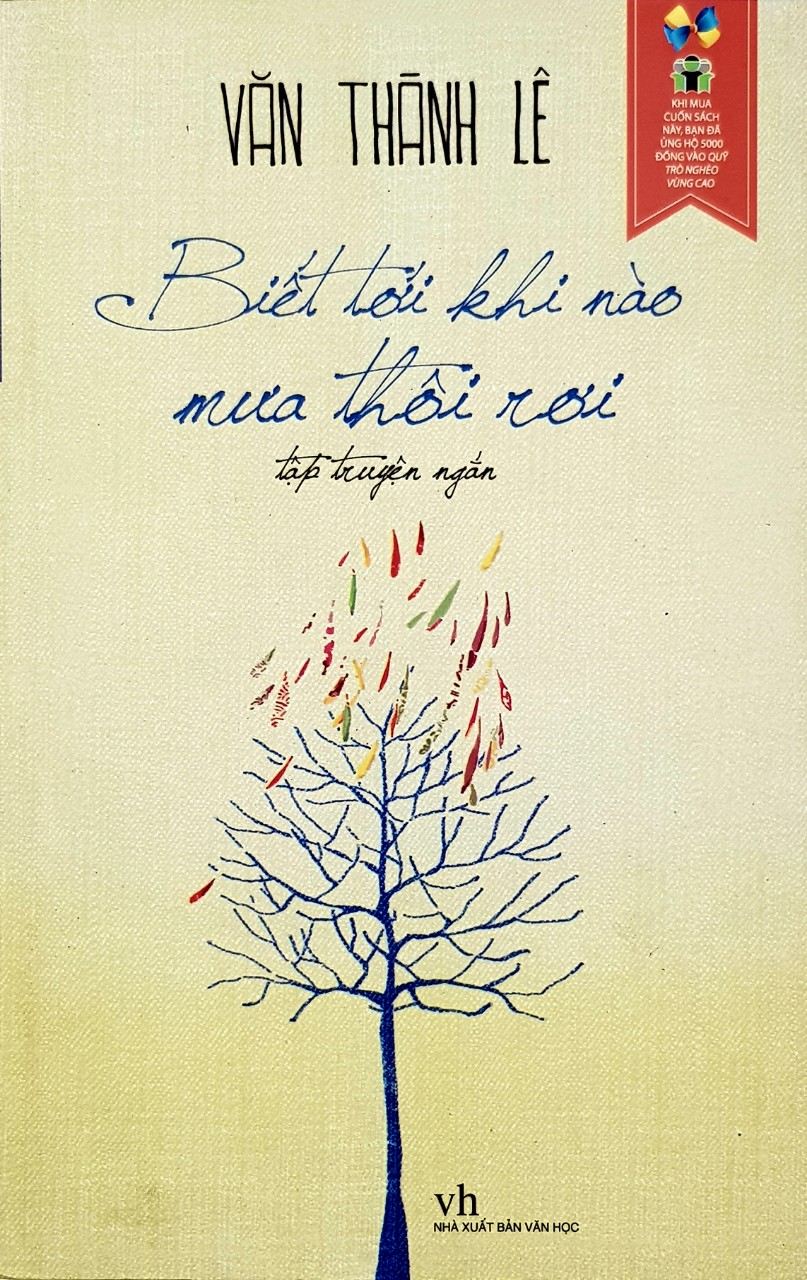 VĂN THÀNH LÊ
KHI MUA
CUỐN SÁCH
NÀY, BẠN ĐÃ
ỦNG HỘ 5000
ĐỒNG VÀO QUỸ
TRÒ NGHÈO
VÙNG CAO
Biết tới khi nào
mưa thôi rơi
tập truyện ngắn
vh
NHÀ XUẤT BẢN VĂN HỌC